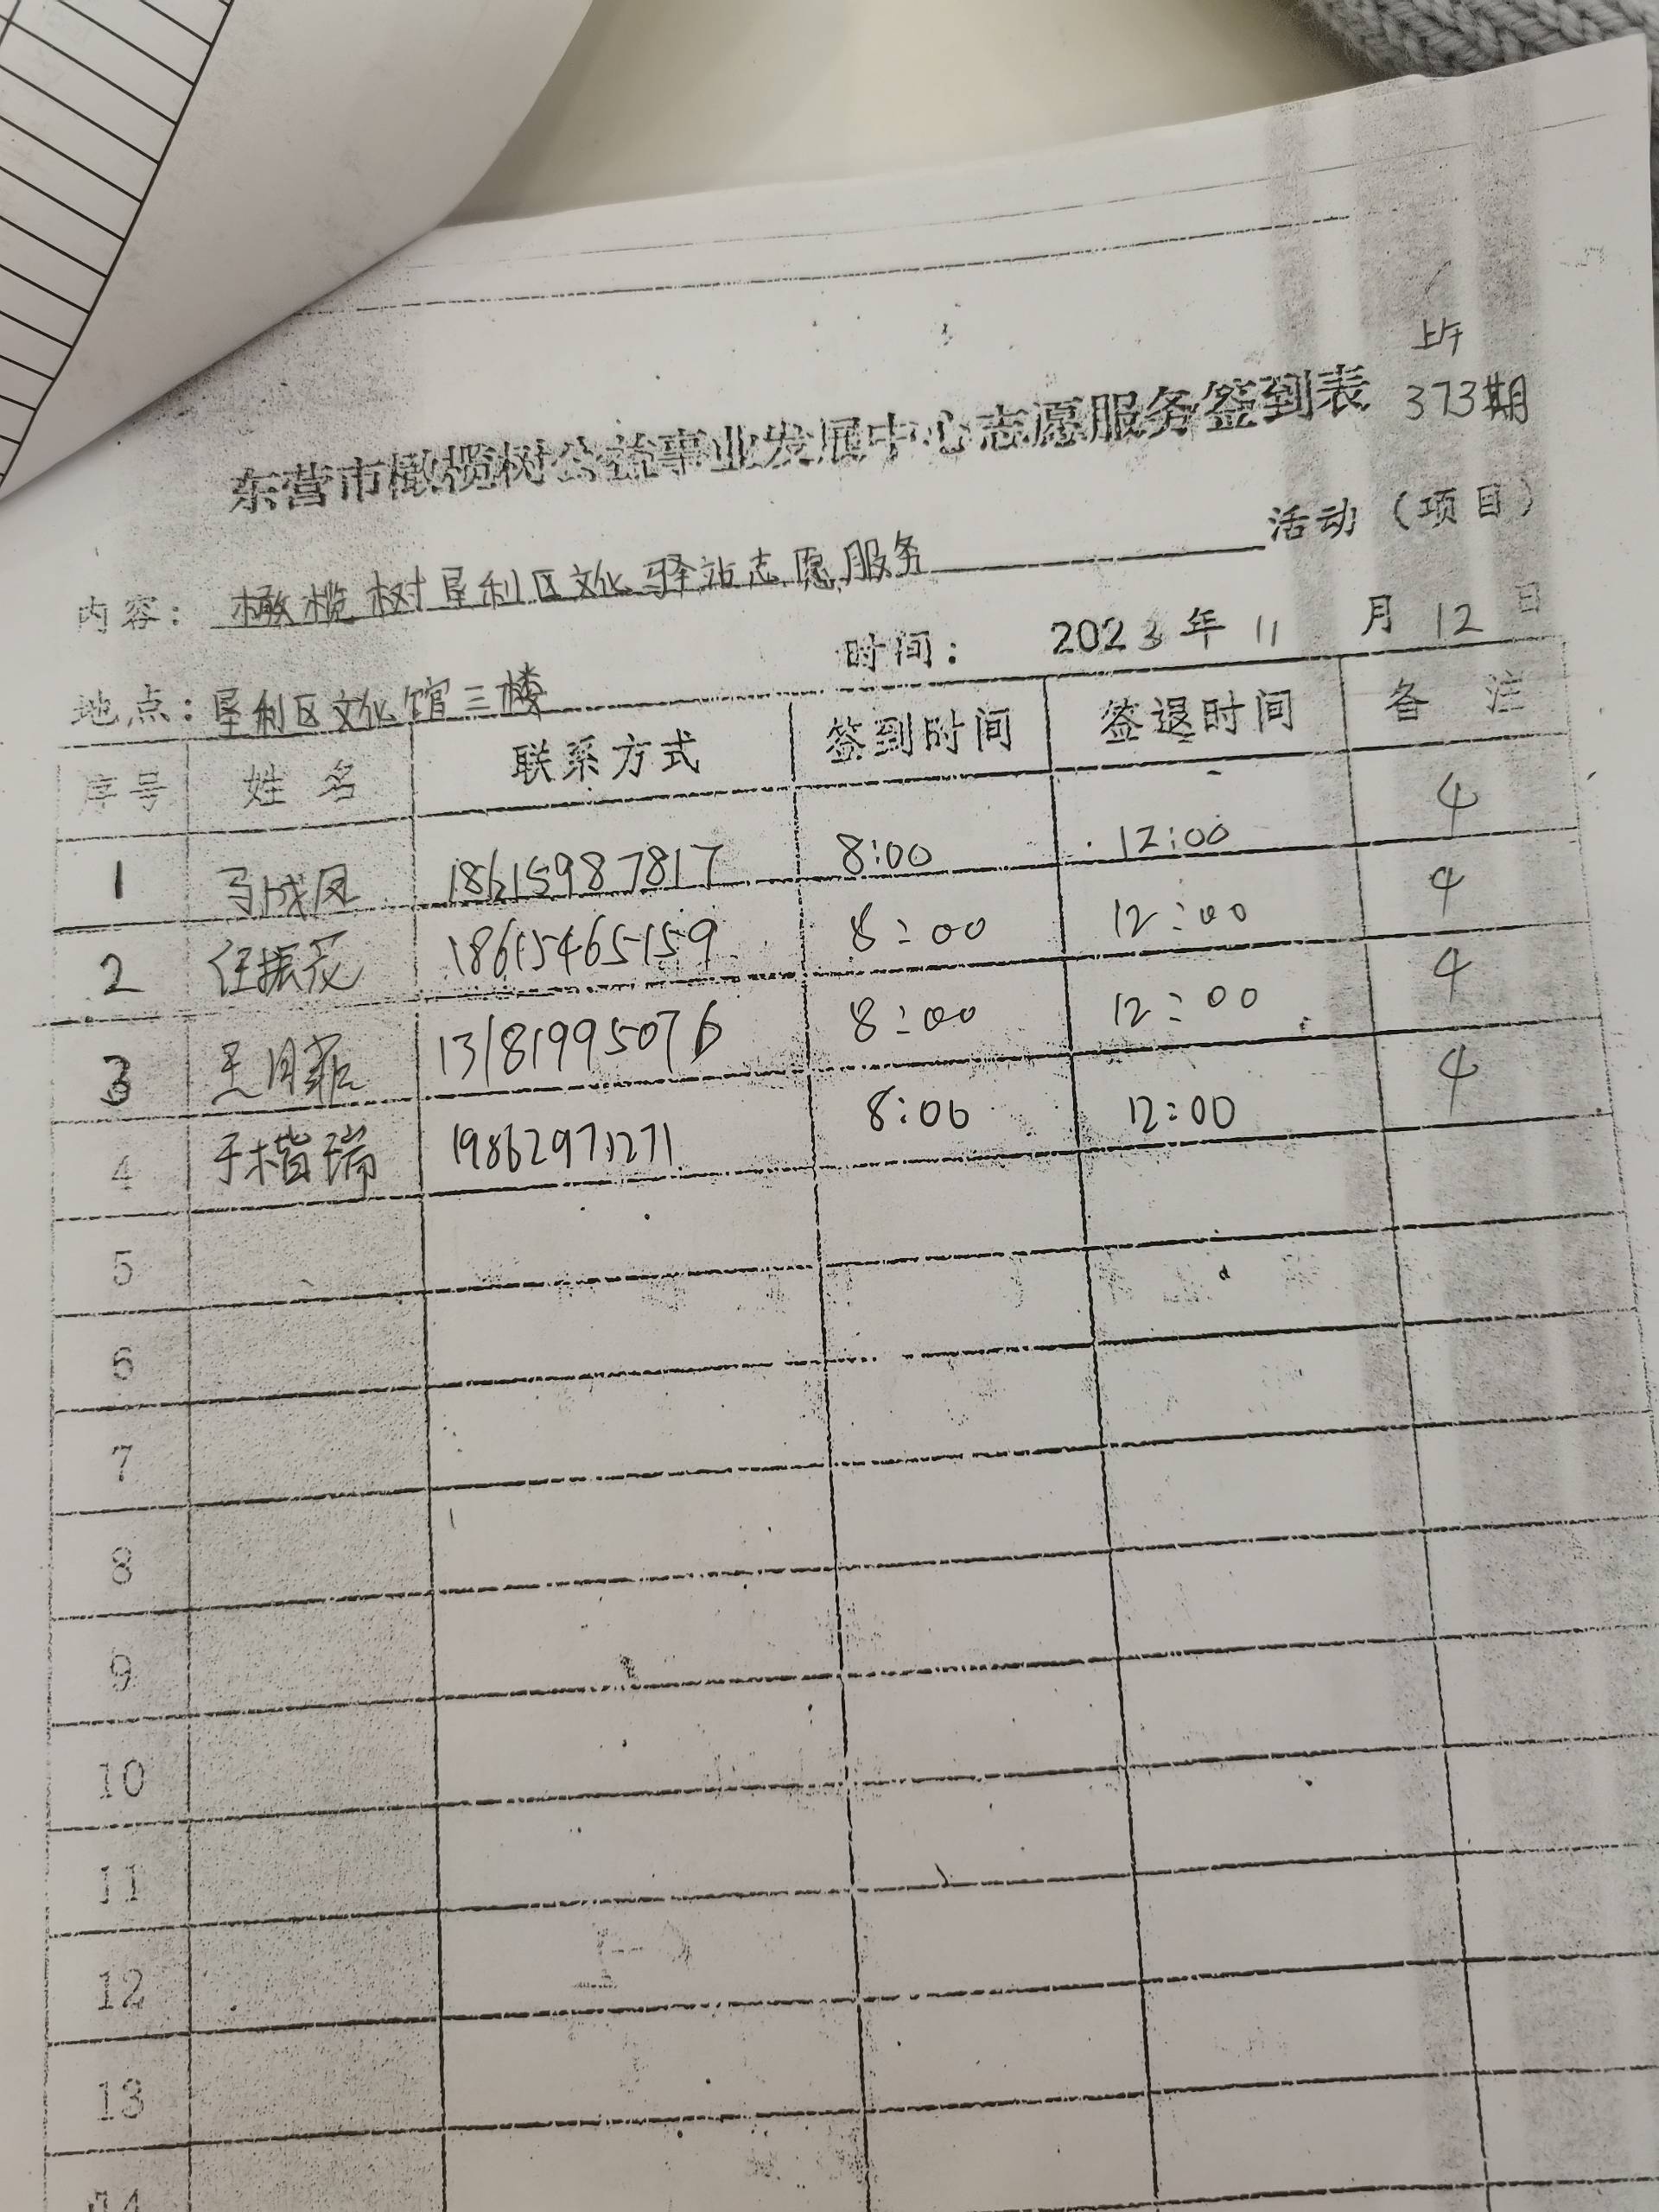 上午
东营市橄榄树公益事业发展中心志愿服务签到表 373期
内容：橄榄树垦利区文化驿站志愿服务 活动（项目）
地点：垦利区文化馆三楼 时间： 2023 年 11 月 12 日
序号 姓 名 联系方式 签到时间 签退时间 备 注
1 马成凤 18615987817 8:00 12:00 4
2 任振 18615465159 8:00 12:00 4
3 王月 13181995076 8:00 12:00 4
4 于楷瑞 19862971271 8:00 12:00 4
5
6
7
8
9
10
11
12
13
14